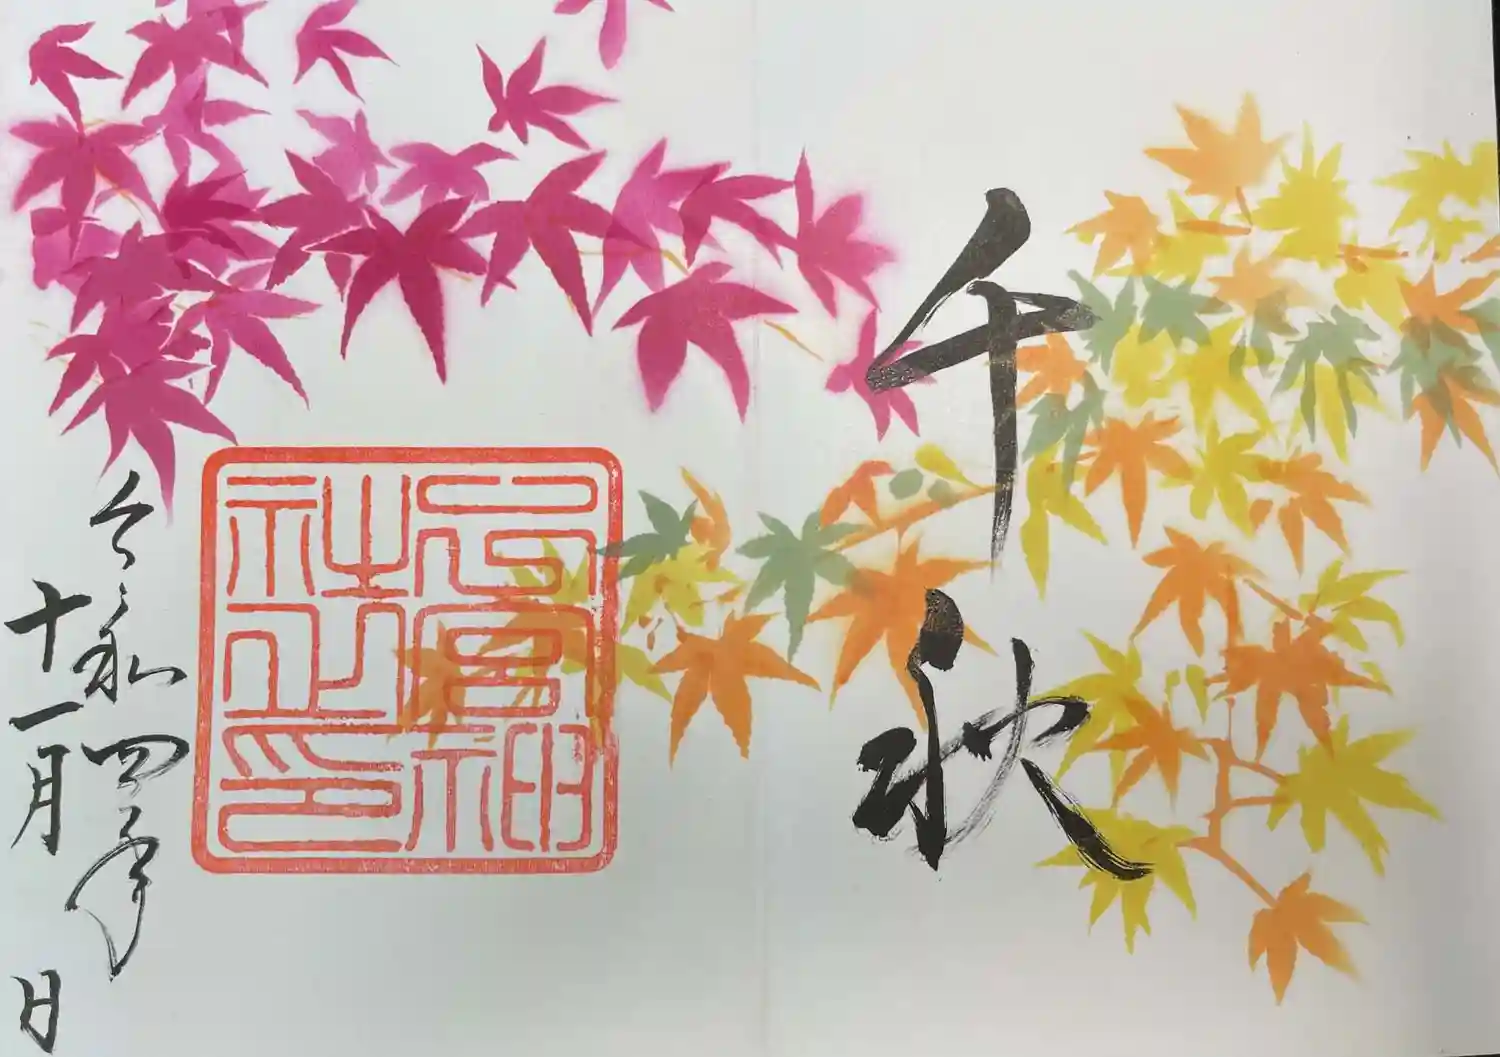 千秋
宮神
社之印
令和四年
十一月 日